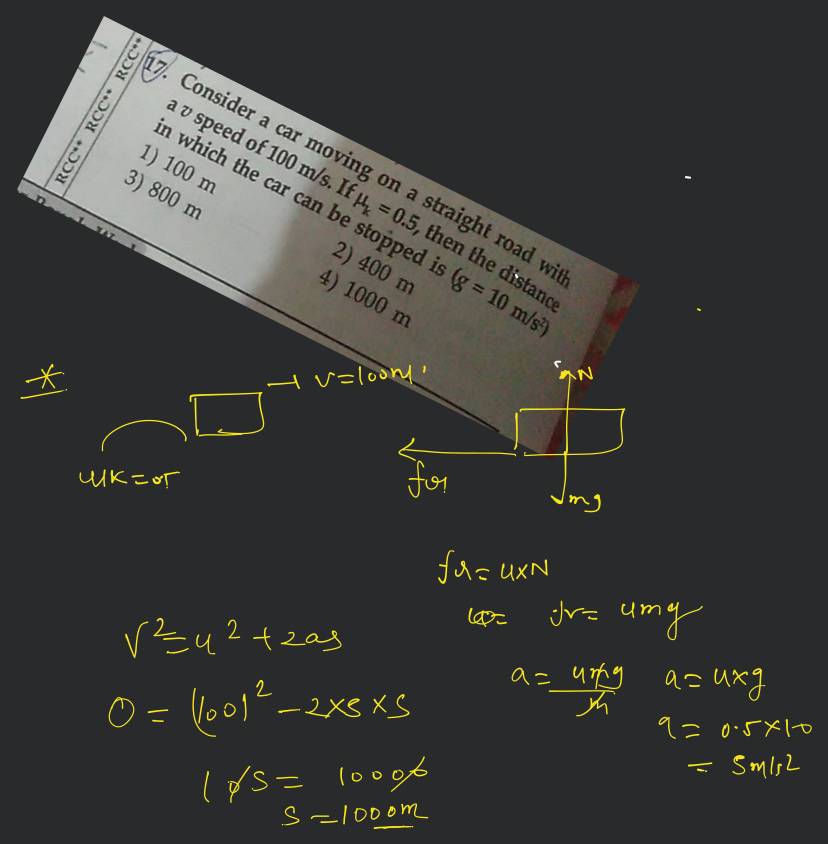 RCC** RCC** RCC**
17. Consider a car moving on a straight road with
a v speed of 100 m/s. If μk = 0.5, then the distance
in which the car can be stopped is (g = 10 m/s²)
1) 100 m
2) 400 m
3) 800 m
4) 1000 m
v=100m
N
fr
mg
fr = uxN
fr = umg
v² = u² + 2as
a = umg/m a = uxg
0 = (100)² - 2x5xs
a = 0.5x10
= 5m/s2
10s = 10000
s = 1000m